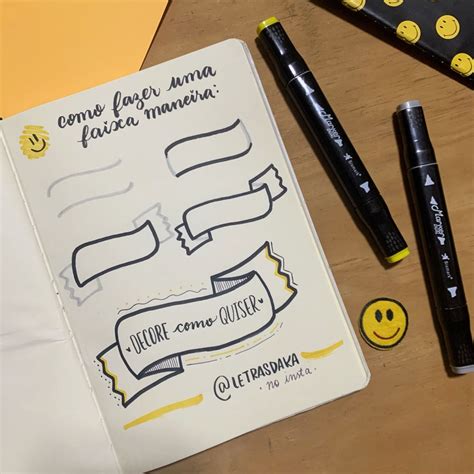 como fazer uma
faixa maneira:
DECORE como QUISER
@LETRASDAKA
no insta.
Marker
Marker